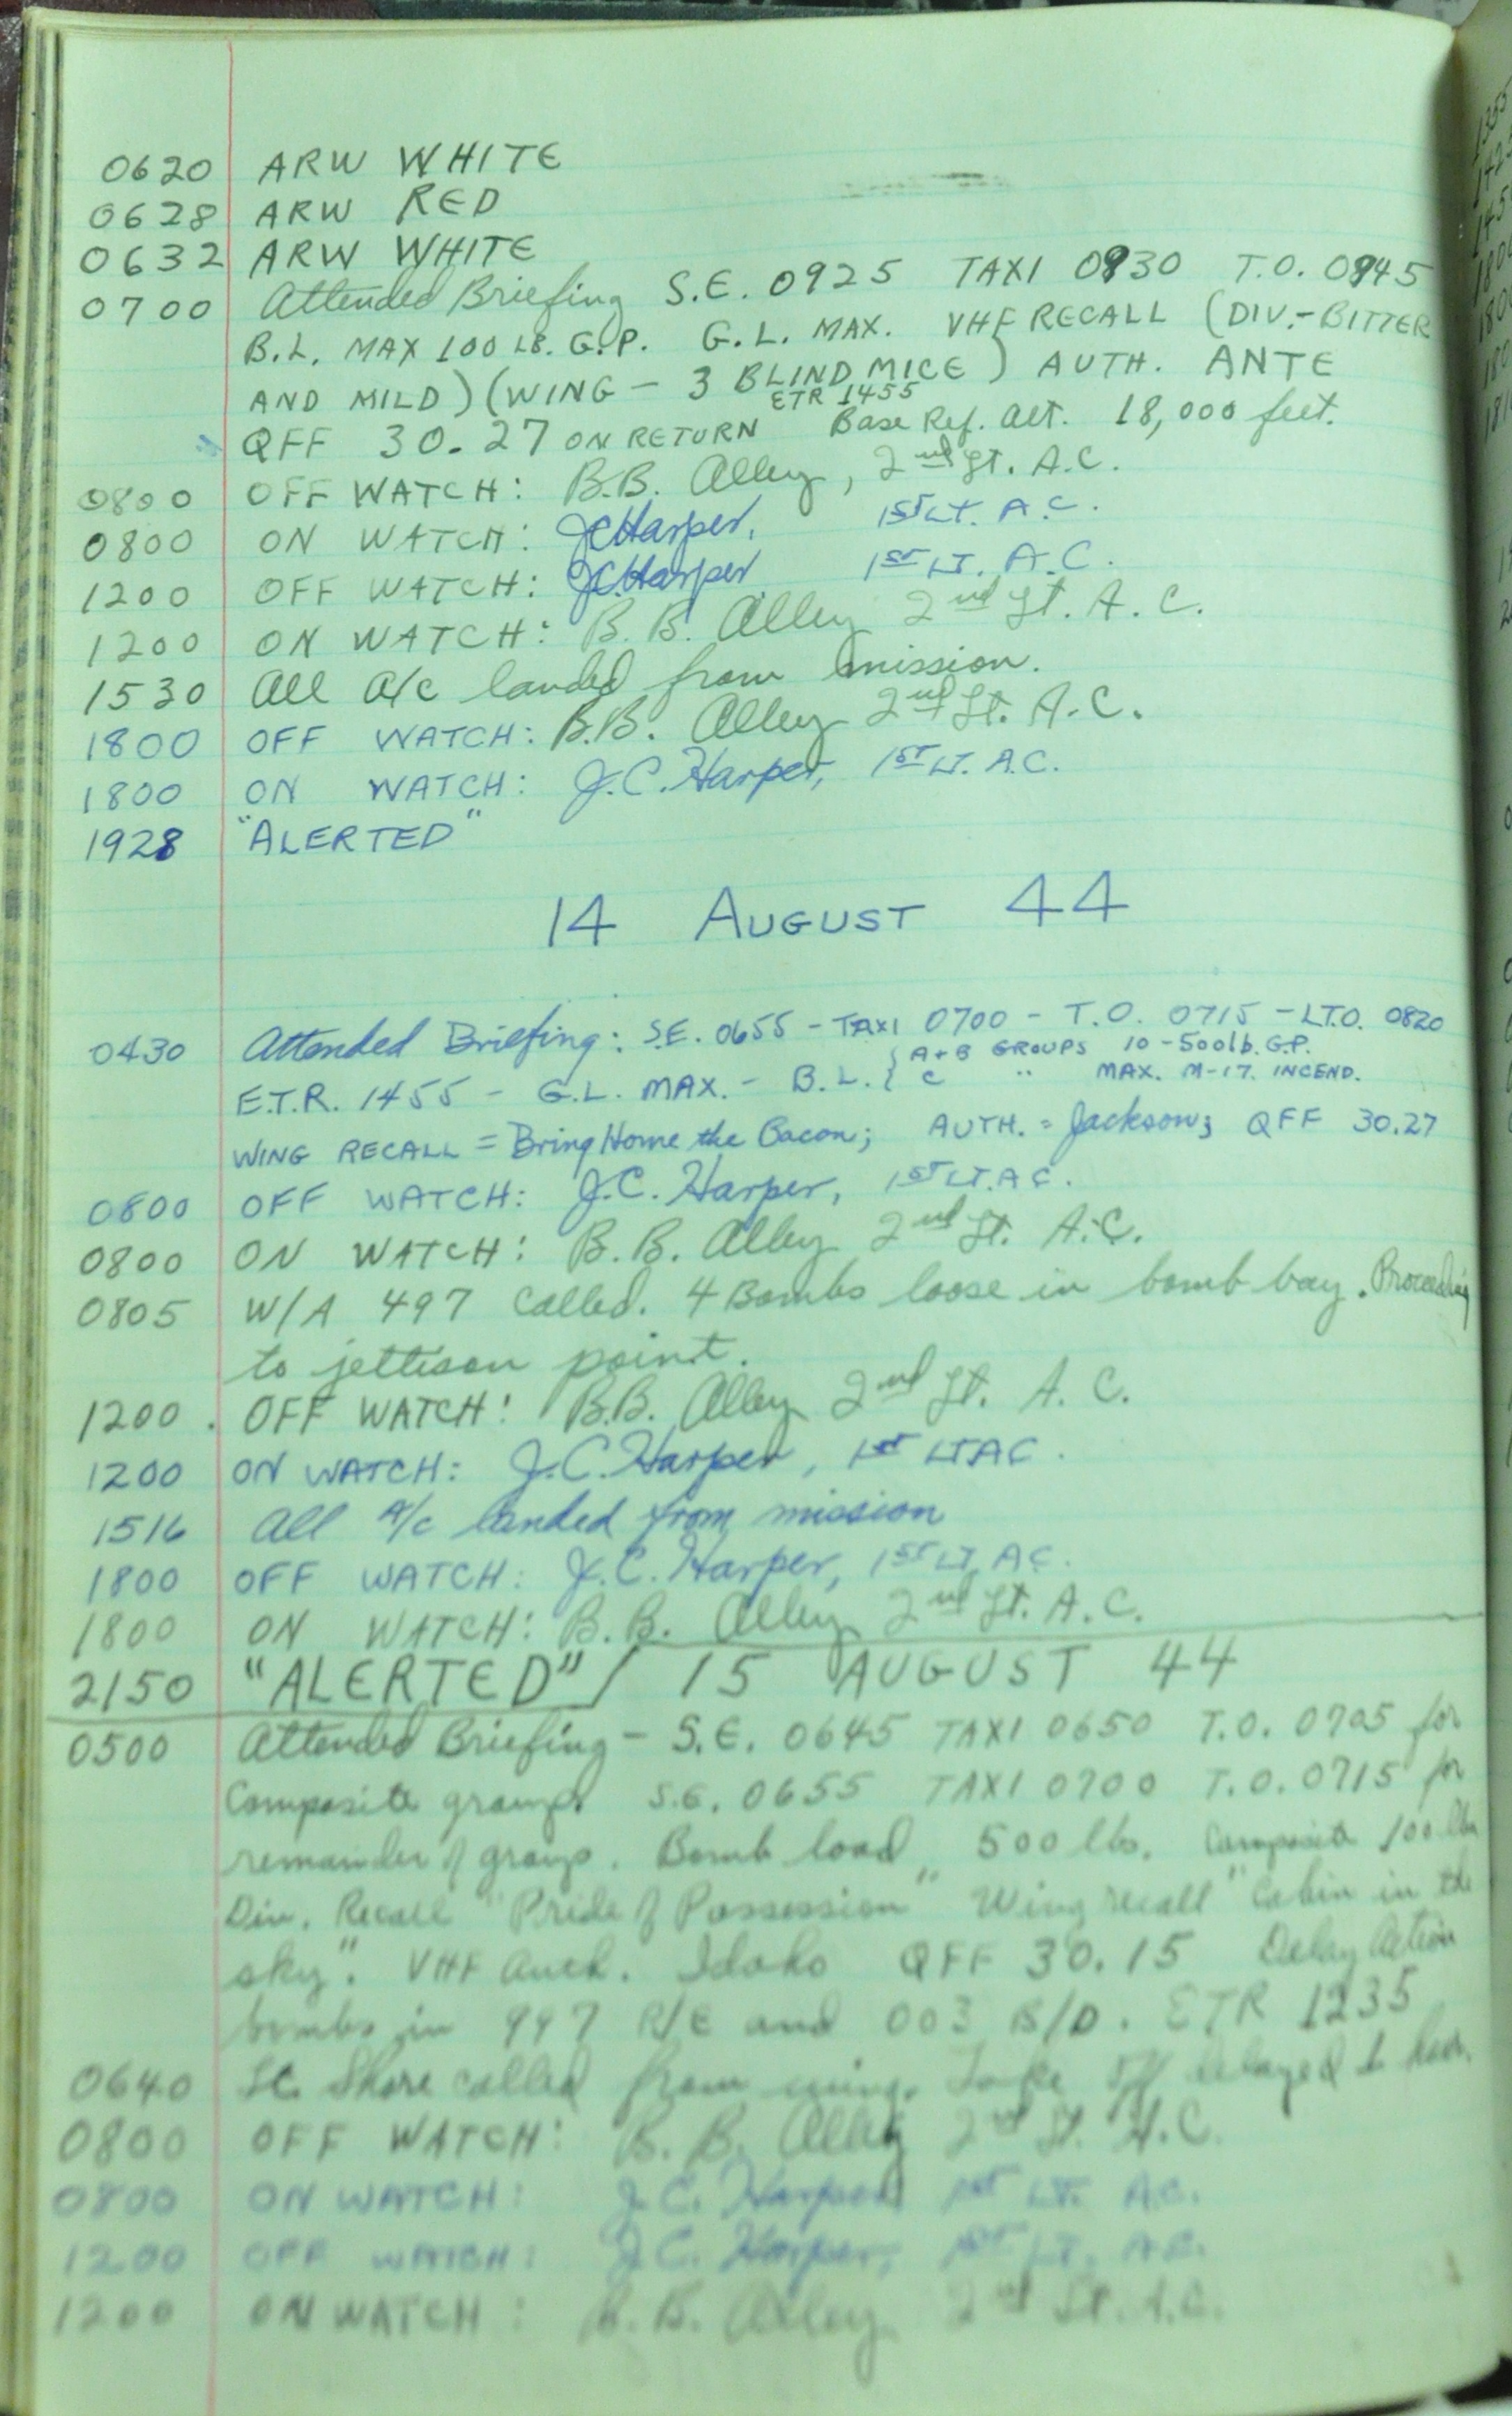 0620 ARW WHITE
0628 ARW RED
0632 ARW WHITE
0700 Attended Briefing S.E. 0925 TAXI 0930 T.O. 0945
B.L. MAX 100 LB. G.P. G.L. MAX. VHF RECALL (DIV.-BITTER
AND MILD) (WING - 3 BLIND MICE) AUTH. ANTE
ETR 1455
QFF 30.27 ON RETURN Base Ref. Alt. 18,000 feet.
0800 OFF WATCH: B.B. Alley, 2nd Lt. A.C.
0800 ON WATCH: JCHarper, 1ST LT. A.C.
1200 OFF WATCH: J.C.Harper 1ST LT. A.C.
1200 ON WATCH: B.B. Alley 2nd Lt. A.C.
1530 All A/c landed from mission.
1800 OFF WATCH: B.B. Alley 2nd Lt. A.C.
1800 ON WATCH: J.C. Harper, 1ST LT. A.C.
1928 "ALERTED"
14 AUGUST 44
0430 Attended Briefing: S.E. 0655 - TAXI 0700 - T.O. 0715 - LT.O. 0820
E.T.R. 1455 - G.L. MAX. - B.L. { A+B GROUPS 10-500lb. G.P.
C " MAX. M-17. INCEND.
WING RECALL = Bring Home the Bacon; AUTH. = Jackson; QFF 30.27
0800 OFF WATCH: J.C. Harper, 1ST LT. A C.
0800 ON WATCH: B.B. Alley 2nd Lt. A.C.
0805 W/A 497 called. 4 Bombs loose in bomb bay. Proceeding
to jettison point.
1200. OFF WATCH: B.B. Alley 2nd Lt. A.C.
1200 ON WATCH: J.C. Harper, 1st LT AC.
1516 All A/c landed from mission
1800 OFF WATCH: J.C. Harper, 1ST LT, AC.
1800 ON WATCH: B.B. Alley 2nd Lt. A.C.
2150 "ALERTED" / 15 AUGUST 44
0500 Attended Briefing - S.E. 0645 TAXI 0650 T.O. 0705 for
Composite group. S.E. 0655 TAXI 0700 T.O. 0715 for
remainder of group. Bomb load 500 lbs. Composite 100 lbs
Div. Recall "Pride of Possession" Wing recall "Cabin in the
sky". VHF Auth. Idaho QFF 30.15 Delay Action
bombs in 997 R/E and 003 B/D. ETR 1235
0640 Lt. Shore called from wing. Take off delayed 1 hour.
0800 OFF WATCH: B.B. Alley 2nd Lt. A.C.
0800 ON WATCH: J.C. Harper 1st LT. A.C.
1200 OFF WATCH: J.C. Harper, 1ST LT. A.C.
1200 ON WATCH: B.B. Alley 2nd Lt. A.C.